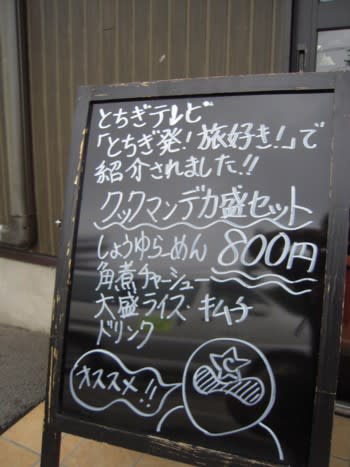 とちぎテレビ
「とちぎ発!旅好き!」で
紹介されました!!
クックマンデカ盛セット
しょうゆらーめん 800円
角煮チャーシュー
大盛ライス・キムチ
ドリンク
オススメ!!